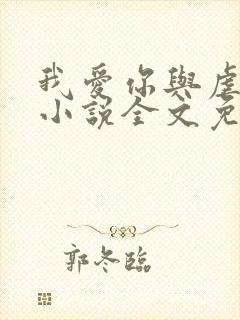 我愛你與虐
小說全文免
郭冬臨